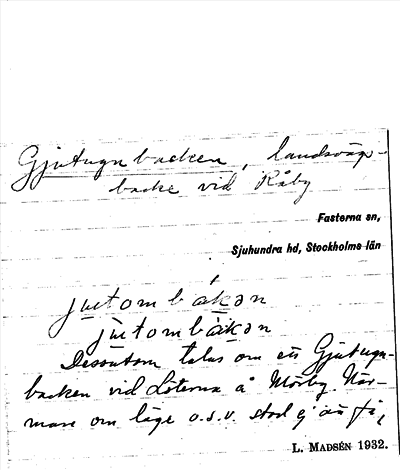 Gjutugnbacken, landsvägs-
backe vid Råby
Fasterna sn,
Sjuhundra hd, Stockholms län
jutombákən
jùtombàkən
Dessutom talas om en Gjutugn-
backen vid Loterna å Mörby. När-
mare om läge o.s.v. stod ej att få,
L. MADSÉN 1932.